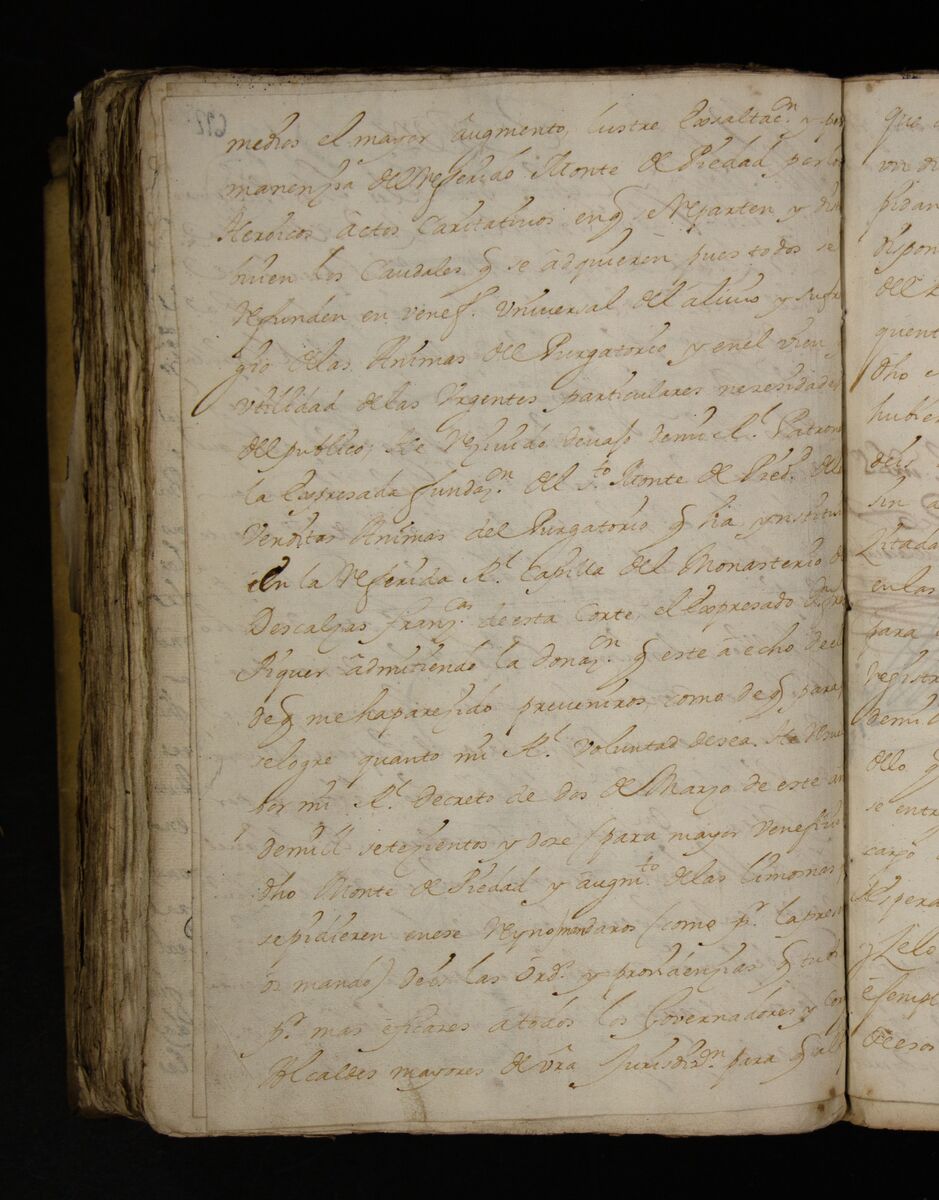 medios el mayor augmento, lustre Exsaltac.on y per
manensia del Referido Monte de Piedad por los
Heroicos actos Caritativos en q se Reparten y dis
buien los Caudales q se adquieren pues todos se
Refunden en venef.o Universal del alivio y sufra
gio de las Animas del Purgatorio y en el vien y
vtilidad de las Urgentes particulares nezesidades
del publico, He Resiuido devajo demi R.l Patron
la Expresada fundaz.on del s.to Monte de Pied.d de las
Venditas Animas del Purgatorio q ha ynstitu
en la Referida R.l Capilla del Monasterio de
Descalzas franz.cas de esta Corte, el Expresado Dn fran
Piquer admitiendo la donaz.on q este a echo de el
de q me ha paresido preveniros, como de q para q
se logre quanto mi R.l Voluntad desea. He Resue
por mi R.l Decreto de dos de Marzo de este añ
demill setezientos y doze (para mayor Venefizio
dho Monte de Piedad y augm.to de las limosnas q
se pidieren en ese Reyno) mandaros (como p.r la prese
os mando) deis las ord.s y providensias q tub
p.r mas eficazes a todos los Governadores y Cor
Alcaldes mayores de vra Jurisdiz.on para q al
que
vn di
pidan
dispon
del R
quent
dho e
hubier
deis
sin a
Zitada
en las
para
registr
demil
dello q
se entr
cargo
Respera
y Zelo
exempl
de esos